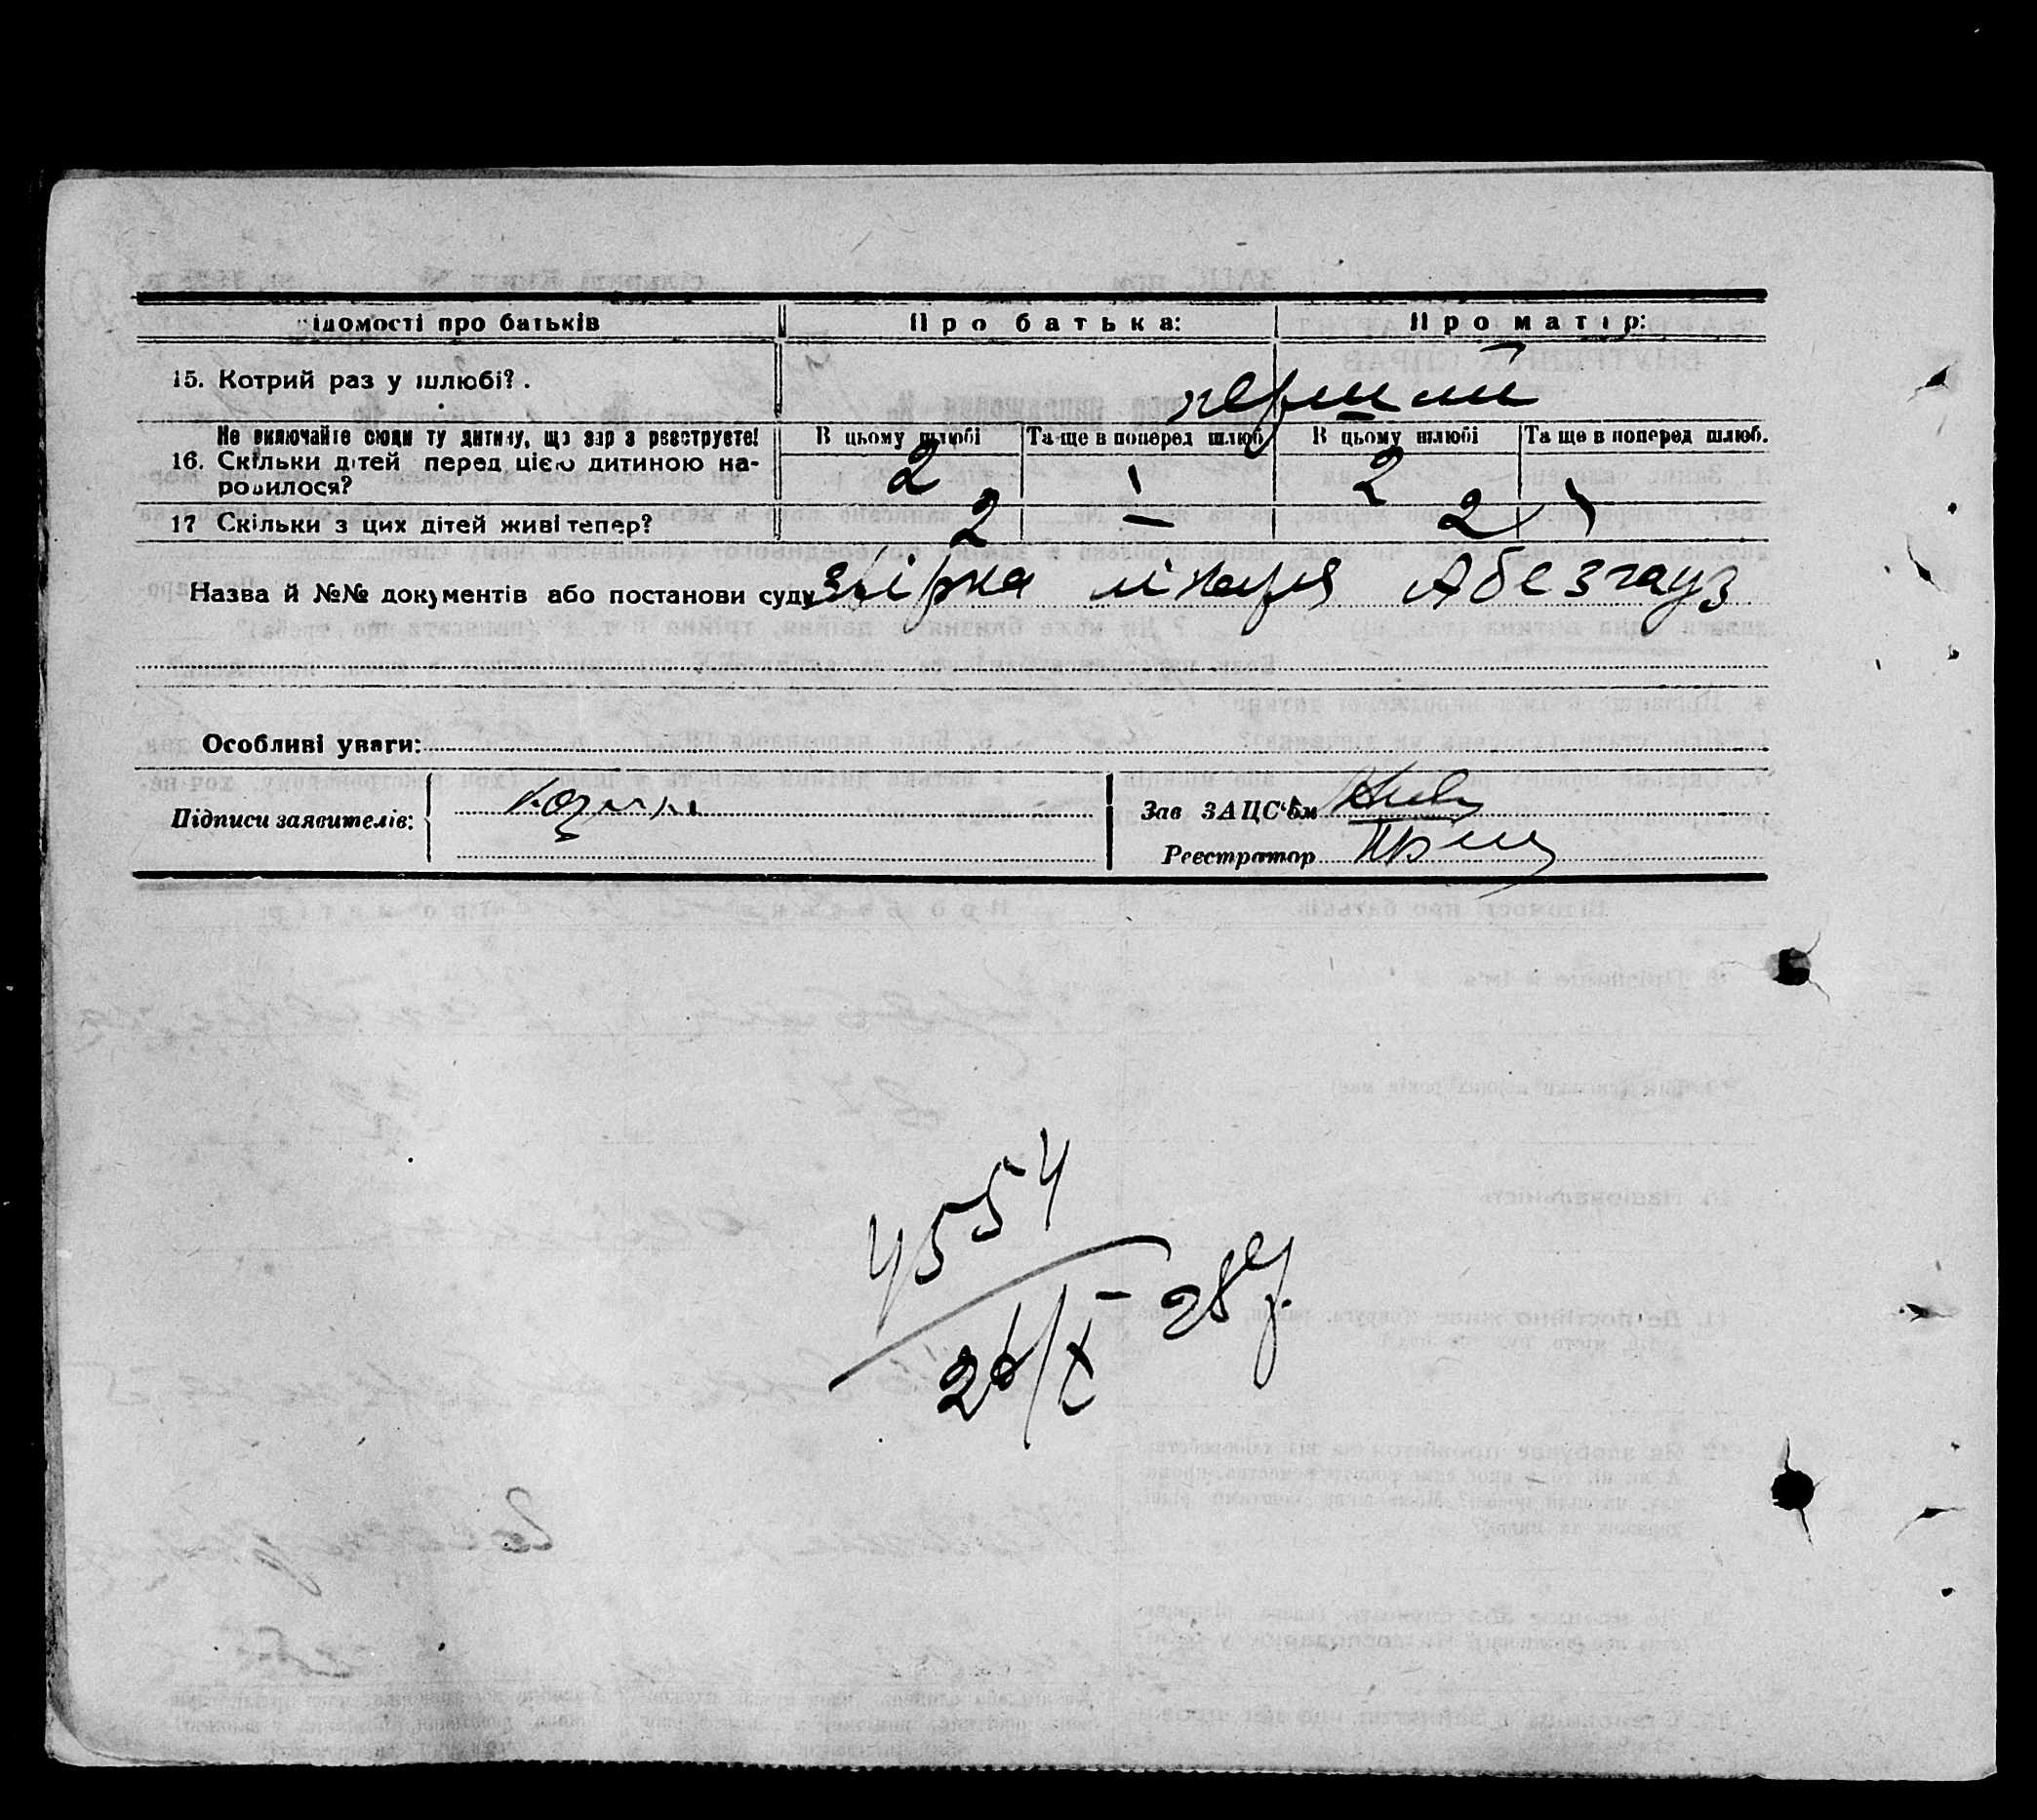 Відомості про батьків
Про батька:
Про матір:
15. Котрий раз у шлюбі?
перший
Не включайте сюди ту дитину, що зараз реєструєте!
В цьому шлюбі
Та ще в поперед шлюб
В цьому шлюбі
Та ще в поперед шлюб.
16. Скільки дітей перед цією дитиною на-
родилося?
2
2
17 Скільки з цих дітей живі тепер?
2
–
2
Назва й №№ документів або постанови суду лікаря Абезгауз
Особливі уваги:
Підписи заявителів:
Зав ЗАЦС'ом
Реєстратор
4554
26/X – 28 р.